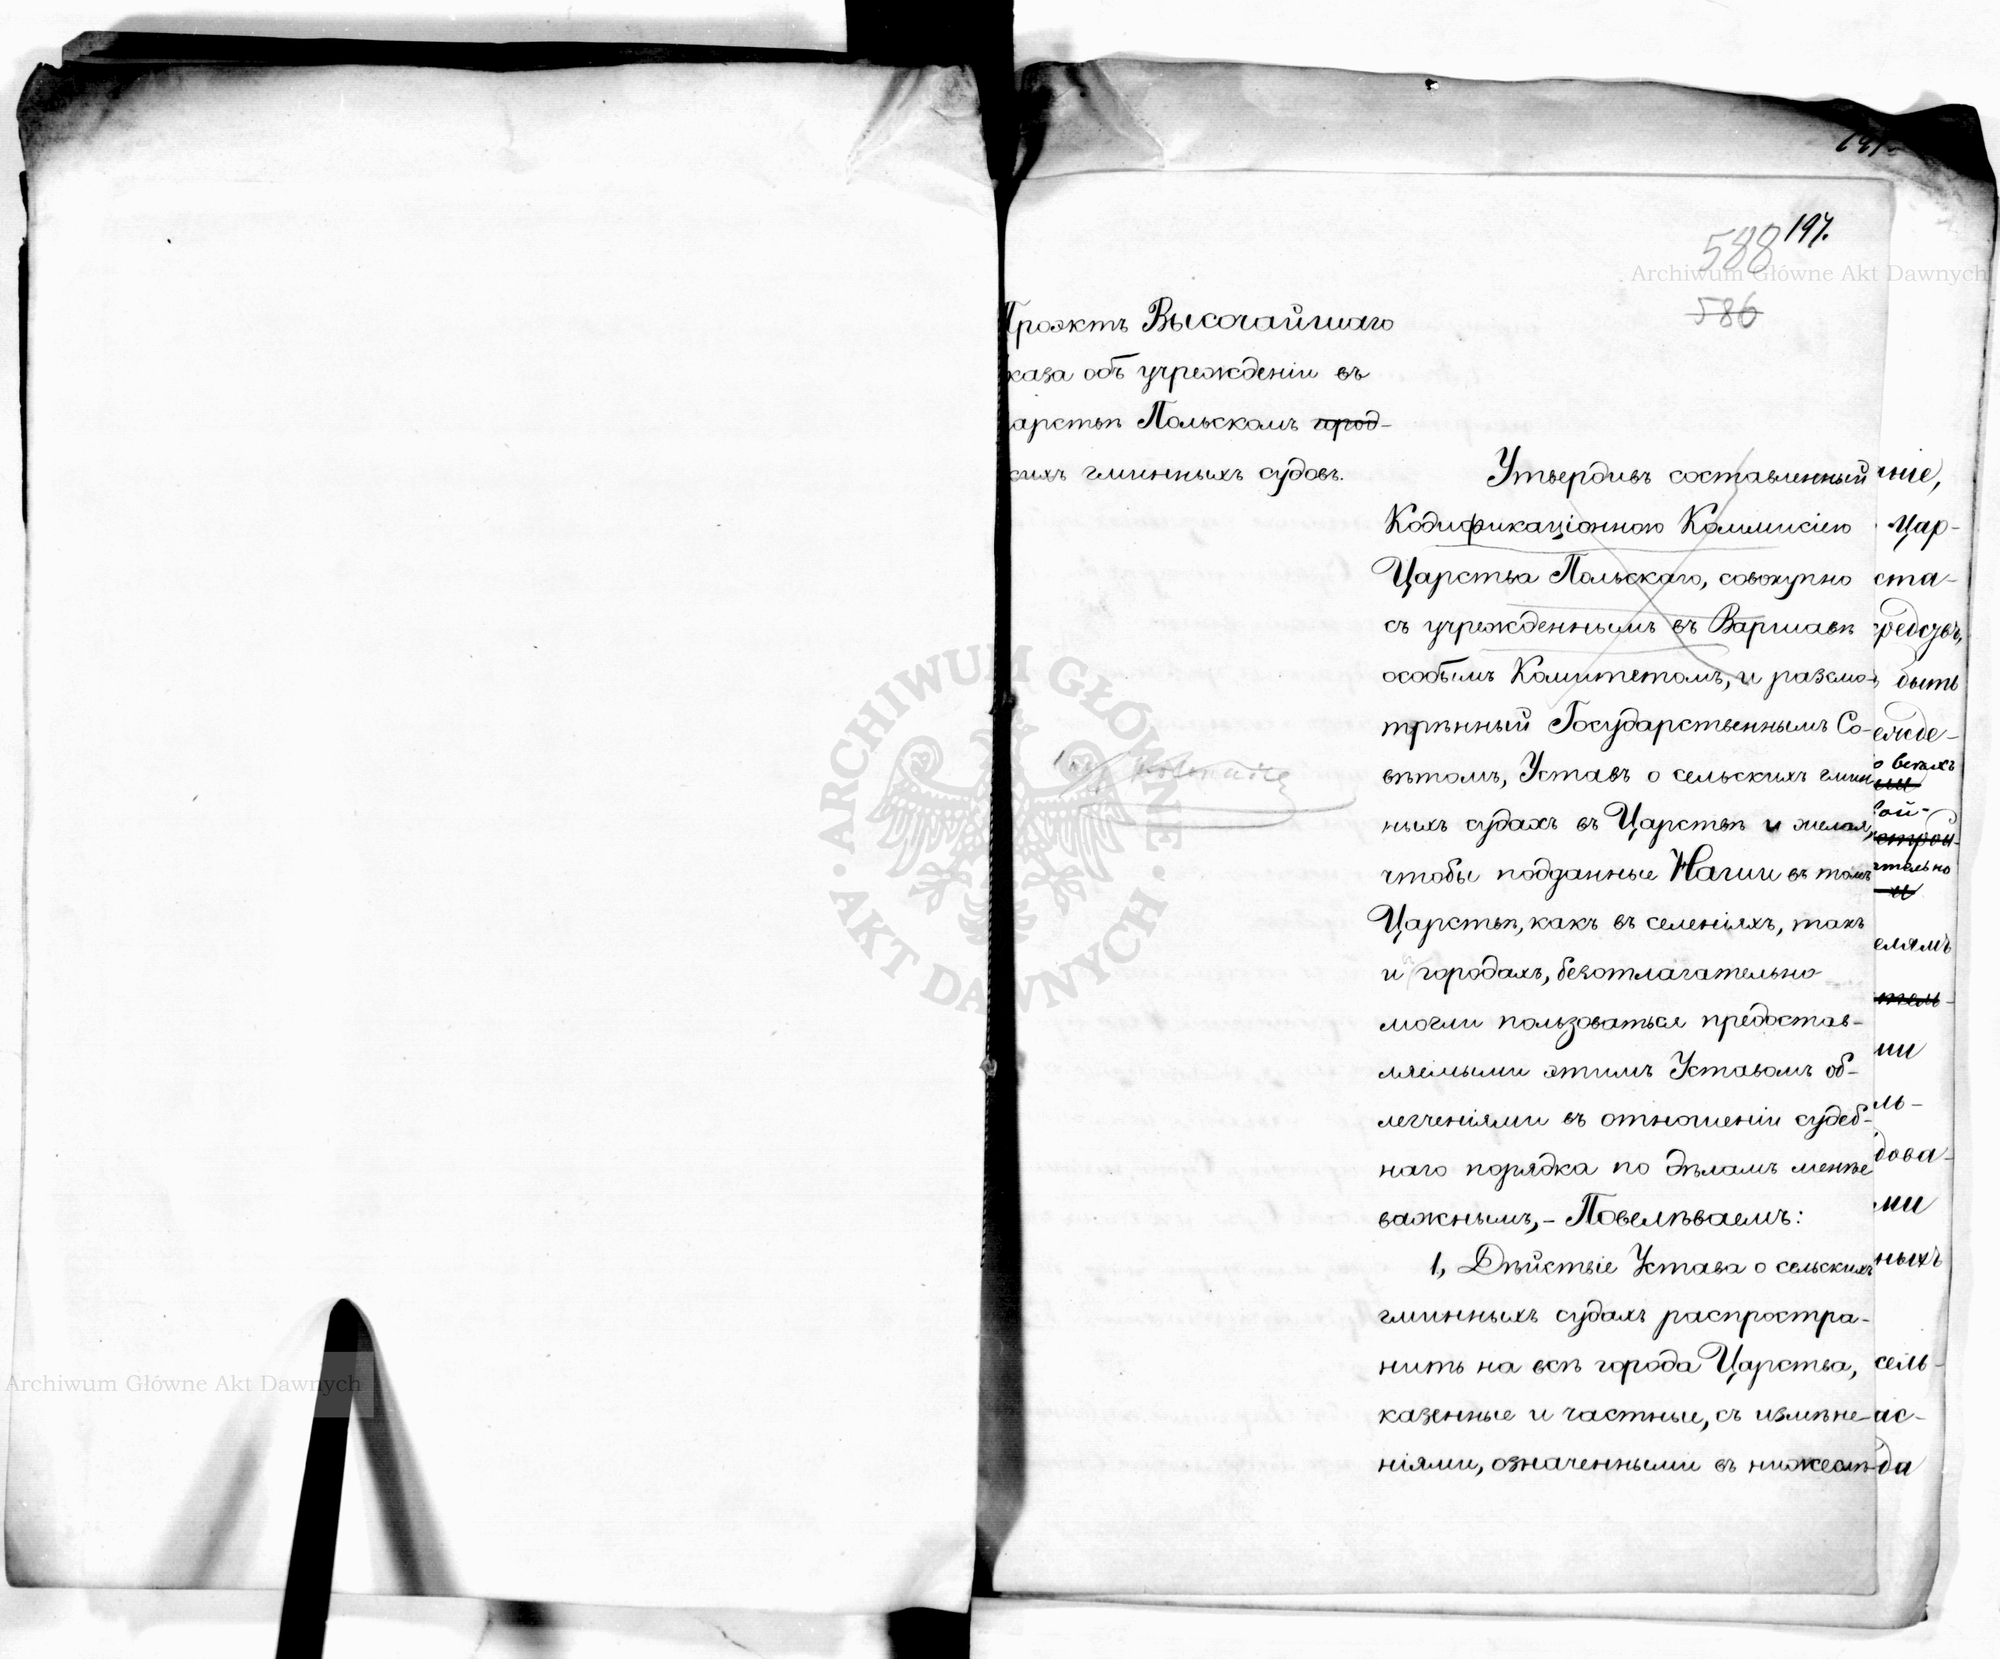 197.
588
586
Проэктъ Высочайшаго
каза объ учрежденіи въ
арствѣ Польскомъ город-
скихъ гминныхъ судовъ.
Утвердивъ составленный
Кодификаціонною Коммисіею
Царства Польскаго, совокупно
съ учрежденнымъ въ Варшавѣ
особымъ Комитетомъ, и разсмо-
трѣнный Государственнымъ Со-
вѣтомъ, Уставъ о сельскихъ гмин
ныхъ судахъ въ Царствѣ и желая,
чтобы подданные Наши въ томъ
Царствѣ, какъ въ селеніяхъ, такъ
и городахъ, безотлагательно
могли пользоваться предостав-
ляемыми этимъ Уставомъ об-
легченіями въ отношеніи судеб-
наго порядка по дѣламъ менѣе
важнымъ,- Повелѣваемъ:
1, Дѣйствіе Устава о сельскихъ
гминныхъ судахъ распростра-
нить на всѣ города Царства,
казенные и частные, съ измѣне-
ніями, означенными въ нижеслѣ-
ніе,
Цар-
ста-
редсѣ,
быть
ежде-
о всѣхъ
ой-
ительно
елямъ
ии
ль-
дова-
ми
ныхъ
сель-
ас-
да
Archiwum Główne Akt Dawnych
ARCHIWUM GŁÓWNE AKT DAWNYCH
Archiwum Główne Akt Dawnych